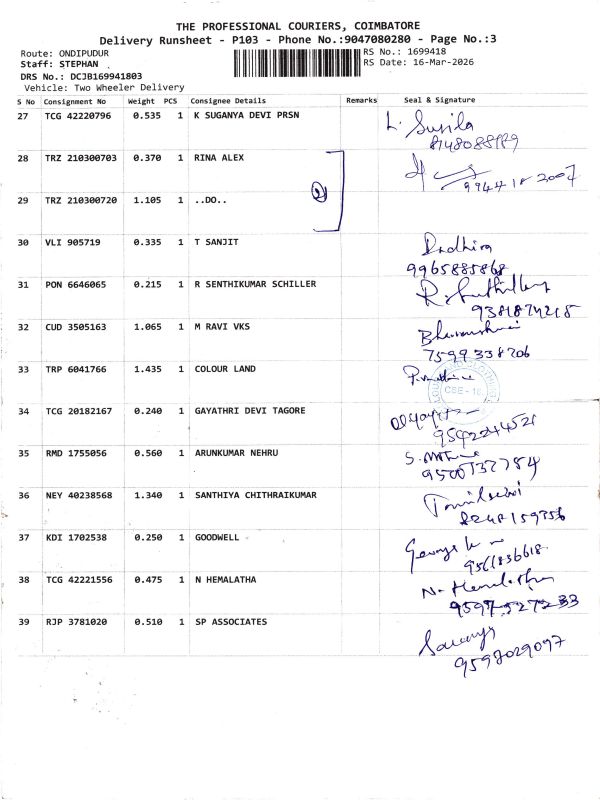 THE PROFESSIONAL COURIERS, COIMBATORE
Delivery Runsheet - P103 - Phone No.:9047080280 - Page No.:3
Route: ONDIPUDUR
RS No.: 1699418
Staff: STEPHAN
RS Date: 16-Mar-2026
DRS No.: DCJB169941803
Vehicle: Two Wheeler Delivery
S No Consignment No Weight PCS Consignee Details Remarks Seal & Signature
27 TCG 42220796 0.535 1 K SUGANYA DEVI PRSN L. Susila
8148088989
28 TRZ 210300703 0.370 1 RINA ALEX
9944182007
29 TRZ 210300720 1.105 1 ..DO.. 2
30 VLI 905719 0.335 1 T SANJIT
9965885868
31 PON 6646065 0.215 1 R SENTHIKUMAR SCHILLER
9381874218
32 CUD 3505163 1.065 1 M RAVI VKS
7599338206
33 TRP 6041766 1.435 1 COLOUR LAND
CBE - 16
34 TCG 20182167 0.240 1 GAYATHRI DEVI TAGORE
9592244521
35 RMD 1755056 0.560 1 ARUNKUMAR NEHRU
9500132784
36 NEY 40238568 1.340 1 SANTHIYA CHITHRAIKUMAR Tamilselvi
8248159356
37 KDI 1702538 0.250 1 GOODWELL
38 TCG 42221556 0.475 1 N HEMALATHA N. Hemalatha
9597527233
39 RJP 3781020 0.510 1 SP ASSOCIATES Saranya
9597029097